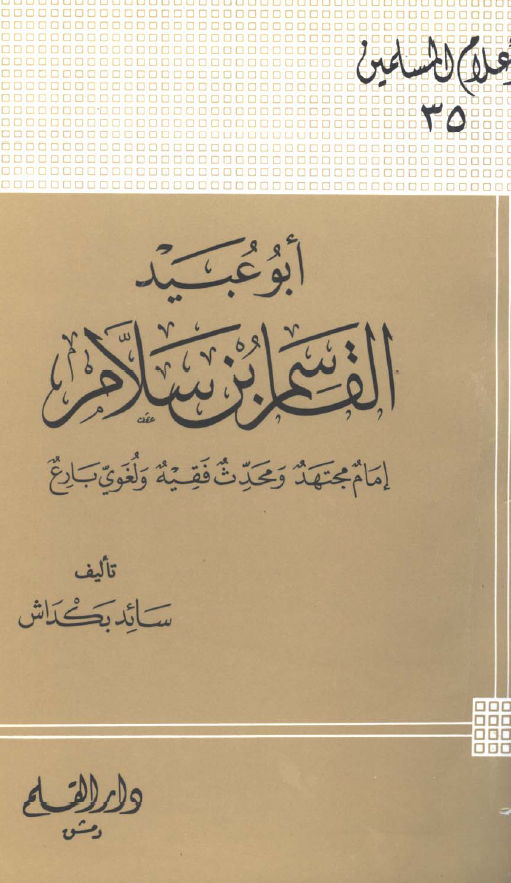 أعلام المسلمين
٣٥
أَبُو عُبَيْد
القَاسِم بُن سَلَّام
إمَامٌ مجتَهَدٌ وَمحَدِّثٌ فَقِيْهٌ وَلُغَويّ بَارِعٌ
تأليف
سَائِد بَكْدَاش
دار القلم
دمشق